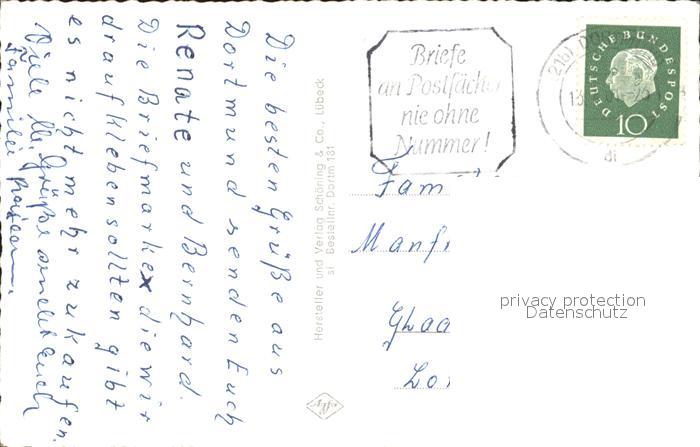 Die besten Grüße aus
Dortmund senden Euch
Renate und Bernhard.
Die Briefmarken die wir
draufkleben sollten gibt
es nicht mehr zu kaufen.
Viele lb. Grüße sendet Euch
Familie
Hersteller und Verlag Schöning & Co., Lübeck
sl Bestellnr. Dortm 181
Agfa
Briefe
an Postfächer
nie ohne
Nummer!
(21b) DO
13.
DEUTSCHE BUNDESPOST
10
Fam
Manf
Lo
privacy protection
Datenschutz